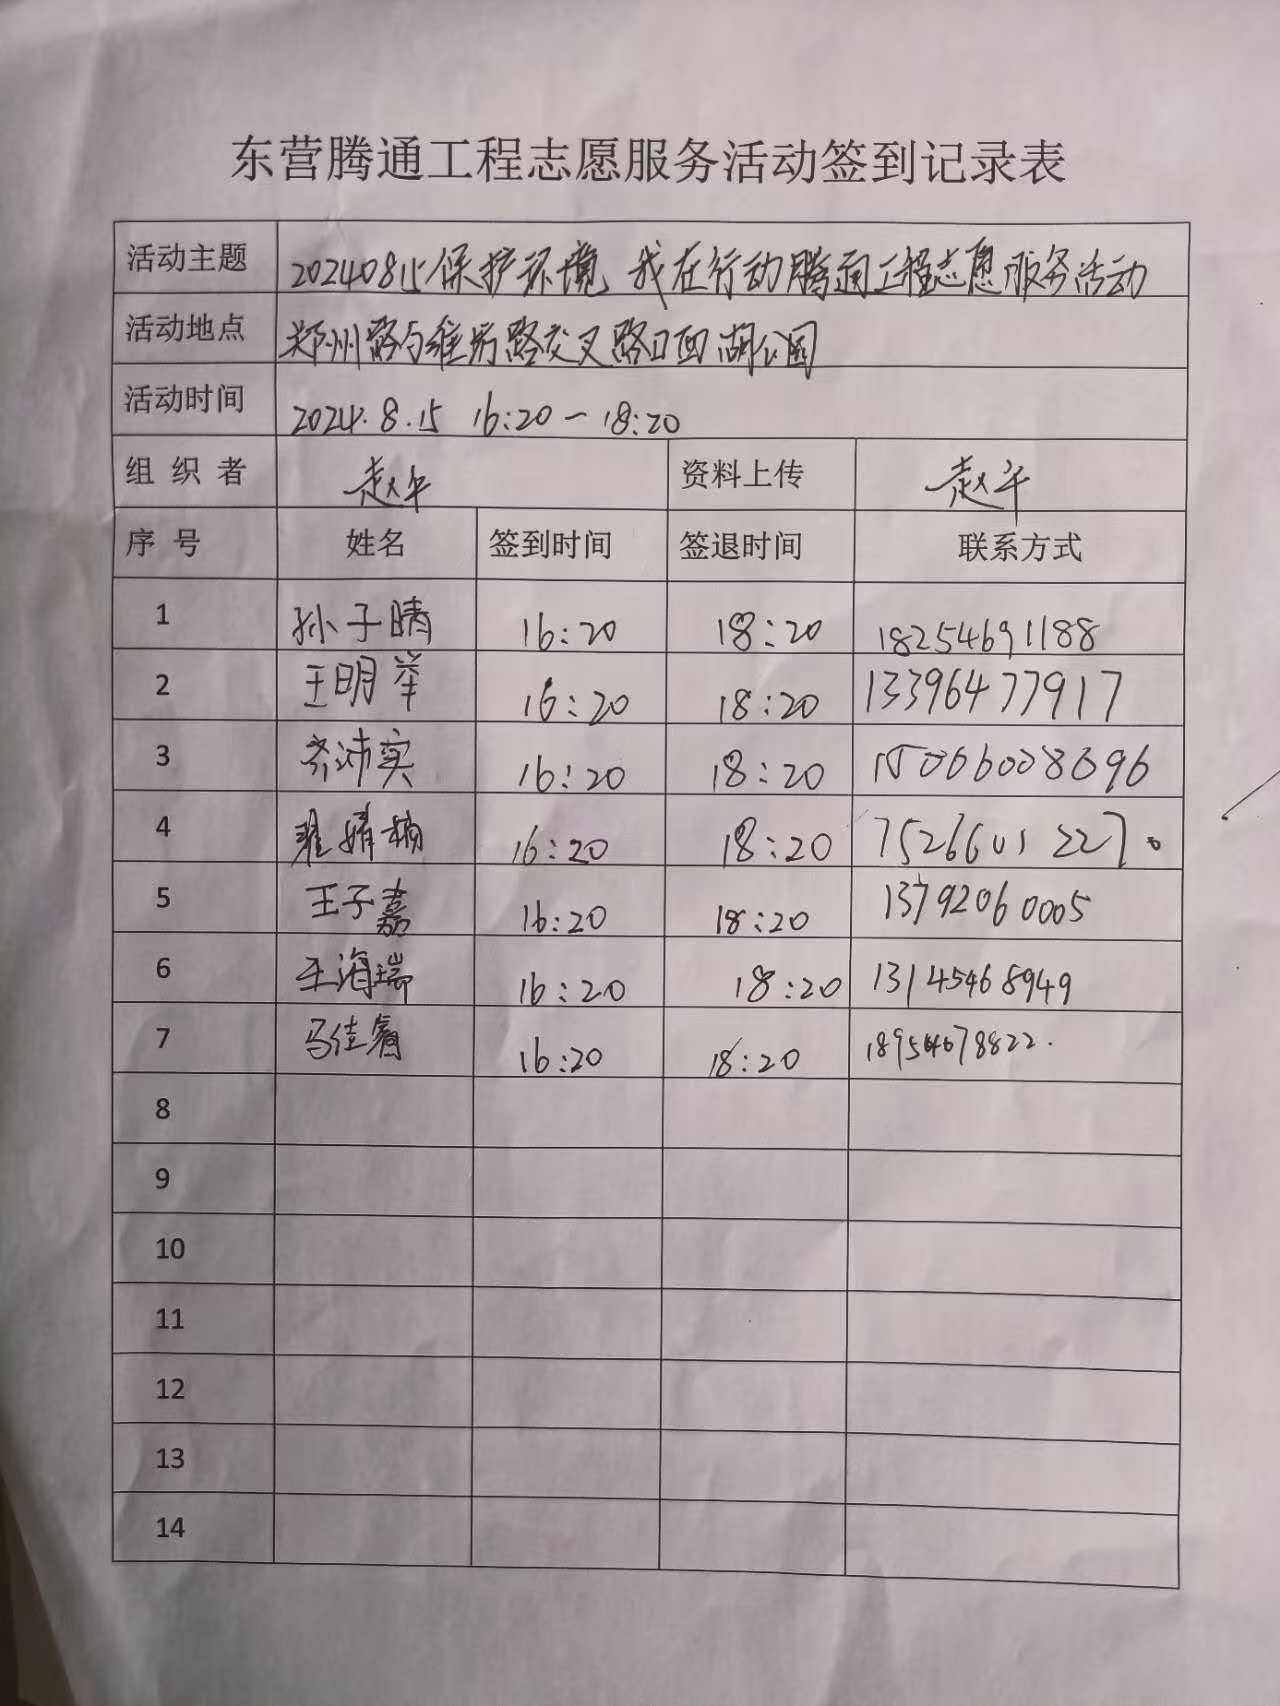 东营腾通工程志愿服务活动签到记录表
活动主题 20240815保护环境 我在行动腾通工程志愿服务活动
活动地点 郑州路与潍坊路交叉路口西湖公园
活动时间 2024.8.15 16:20-18:20
组织者 赵军 资料上传 赵军
序号 姓名 签到时间 签退时间 联系方式
1 孙子晴 16:20 18:20 18254691188
2 王明举 16:20 18:20 13396477917
3 齐沛实 16:20 18:20
4 16:20 18:20
5 王子嘉 16:20 18:20 13792060005
6 王海瑞 16:20 18:20 13145468949
7 马佳睿 16:20 18:20 18954678822.
8
9
10
11
12
13
14